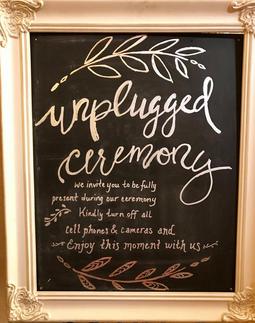 unplugged
ceremony
we invite you to be fully
present during our ceremony
Kindly turn off all
cell phones & cameras and
Enjoy this moment with us